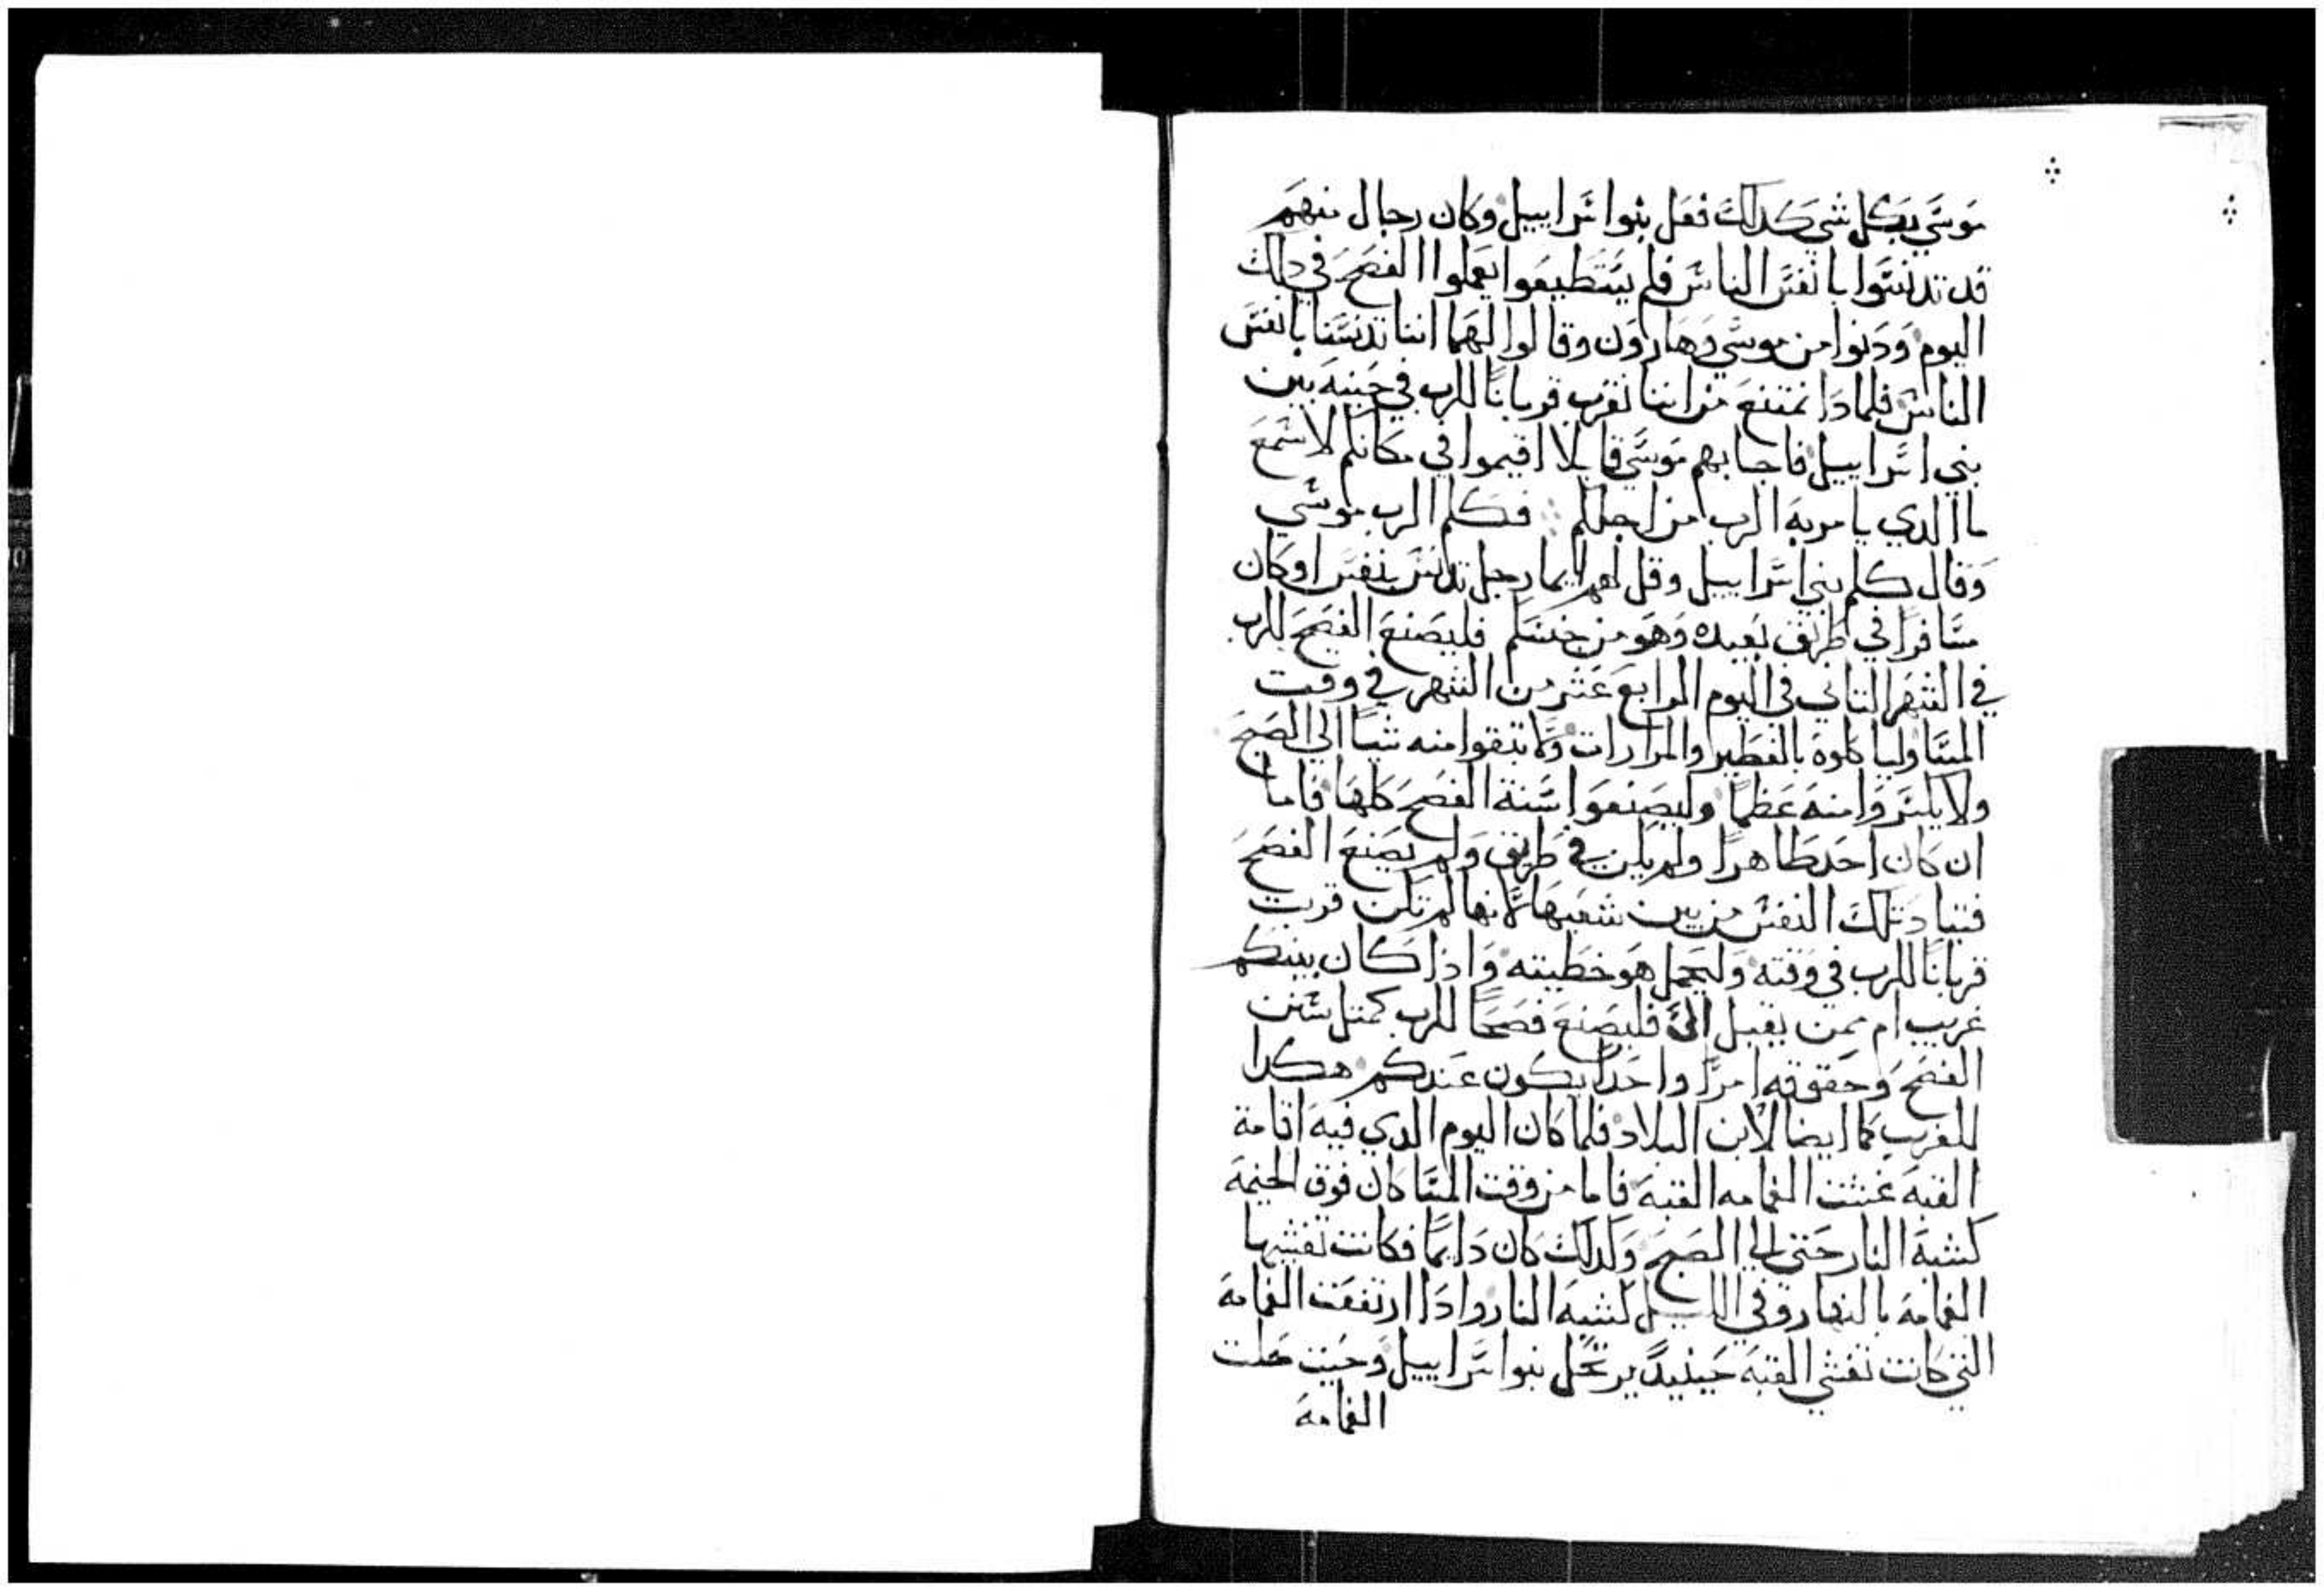 موسي بكل شي كدلك فعل بنوا اسراييل وكان رجال منهم
قد تدنسوا بانفس الناس فلم يستطيعوا يعملوا الفصح في دلك
اليوم ودنوا من موسي وهارون وقالوا لهما اننا تدنسنا بانفس
الناس فلمادا نمتنع من اننا نقرب قربانا للرب في حينه بين
بني اسراييل فاجابهم موسي قايلا اقيموا في مكانكم لاسمع
ما الدي يامر به الرب من اجلكم فكلم الرب موسي
وقال كلم بني اسراييل وقل لهم ايما رجل تدنس بنفس او كان
مسافرا في طريق بعيده وهو من جنسكم فليصنع الفصح للرب
في الشهر التاني في اليوم الرابع عشر من الشهر في وقت
المسا ولياكلوه بالفطير والمرارات ولا تبقوا منه شيا الي الصبح
ولا يكسروا منه عظما وليصنعوا سنة الفصح كلها فاما
ان كان احد طاهرا ولم يكن في طريق ولم يصنع الفصح
فتباد تلك النفس من بين شعبها لانها لم تكن قربت
قربانا للرب في وقته وليحمل هو خطيته واذا كان بينكم
غريب ام ممن يقبل الي فليصنع فصحا للرب كمتل سنن
الفصح وحقوقه امرا واحدا يكون عندكم هكدا
للغريب كما ايضا لابن البلاد فلما كان اليوم الدي فيه اقامة
القبه غشت الغمامه القبه فاما من وقت المسا كان فوق الخيمة
كشبه النار حتي الي الصبح وكدلك كان دايما فكانت تغشيها
الغمامه بالنهار وفي الليل كشبه النار وادا ارتفعت الغمامة
التي كانت تغشي القبه حينيد يرتحل بنوا اسراييل وحيت حلت
الغمامة